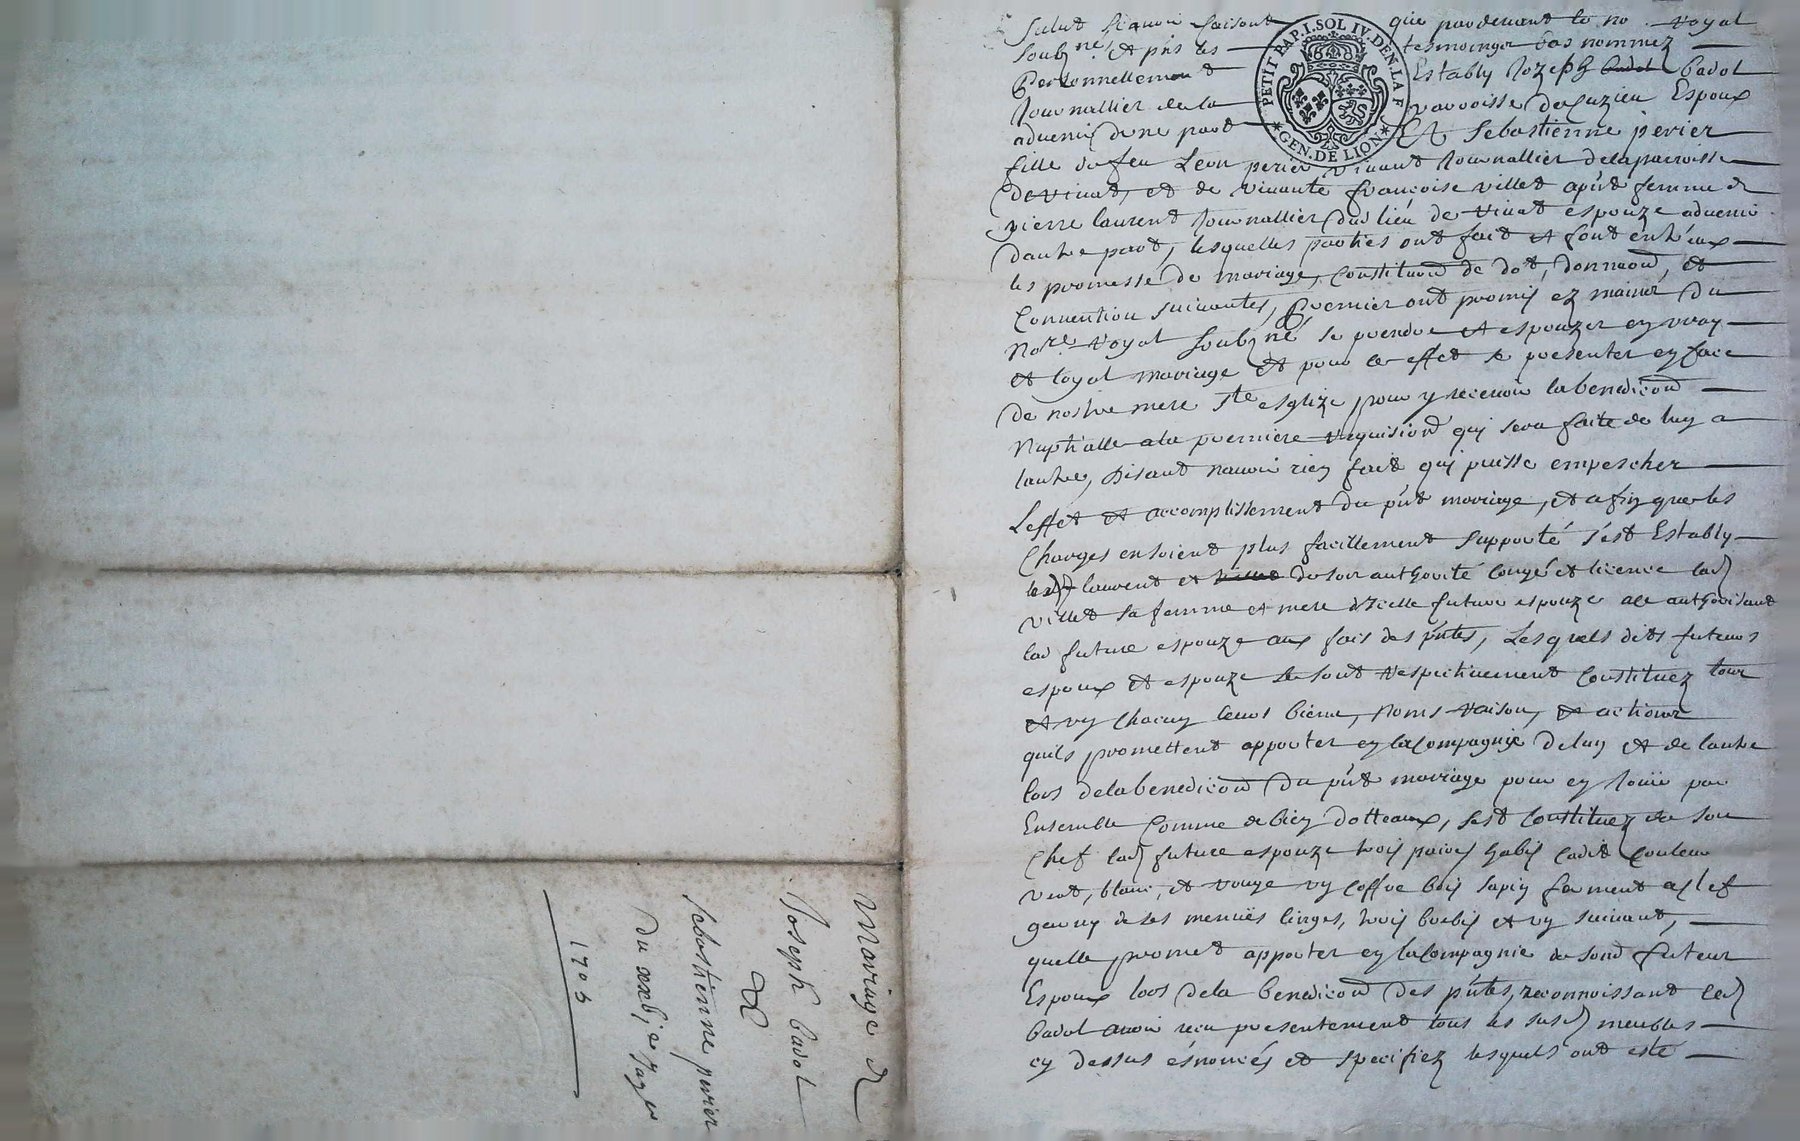 Salut scavoir faisont que pardevant le no. royal
soubz.né et pns les tesmoings bas nommez
Personnellement Estably Jozeph Badol
Journallier de la parroisse de Cuzieu Espoux
advenir d'une part Et Sebastienne perier
fille de feu Leon perier vivant Journallier de la parroisse
de vivat, et de vivante françoise villet apnt femme de
pierre laurent Journallier du lieu de vivat espouze advenir
dautre part, lesquelles parties ont fait et font entr'eux
les promesse de mariage, constituon de dot, donnaon, et
Convention suivantes, Premier ont promis ez mains du
No.re royal soubz.né, se prendre et espouzer en vray
et loyal mariage et pour ce effet se presenter en face
de nostre mere s.te esglize pour y recevoir la benediction
Nuptialle a la premiere requision qui sera faite de luy a
lautre, Disant navoir rien fait qui puisse empescher
Leffet et accomplissement du pnt mariage, et afin que les
Charges en soient plus facillement supporté s'est Estably
led laurent et de son authorité congé et licence lad
villet sa femme et mere d'Icelle future espouze authorisant
lad future espouze aux fais des pntes, Lesquels dits futeurs
espoux et espouze se sont respectivement Constituez tous
et un chacun leurs biens, Noms raison, et actions
quils promettent apporter en la Compagnie de luy et de lautre
lors de la benediction du pnt mariage pour en Jouir par
Ensemble comme de bien dotteaux, s'est Constituez de son
Chef lad future espouze trois paires habis cadit Couleur
vert, blanc, et rouge un coffre bois sapin ferment a clef
garny de ses menuës linges, trois brebis et un suivant,
quelle promet apporter en la Compagnie de sond futeur
Espoux lors de la benediction des pntes, reconnoissant led
Badol avoir recu presentement tous les susd meubles
cy dessus ésnoncés et specifiez lesquels ont esté
PETIT PAP. I. SOL IV. DEN. LA F.
GEN. DE LION
Mariage de
Joseph Badol
&
Sebastienne perier
1703